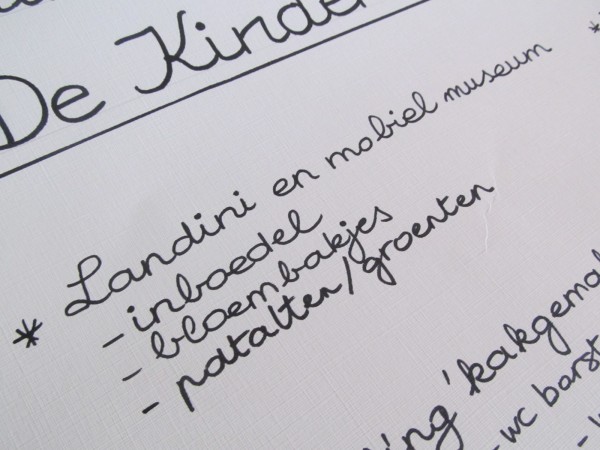 De Kinder
* Landini en mobiel museum
- inboedel
- bloembakjes
- patatten/groenten
ing 'kakgemak
- wc borst